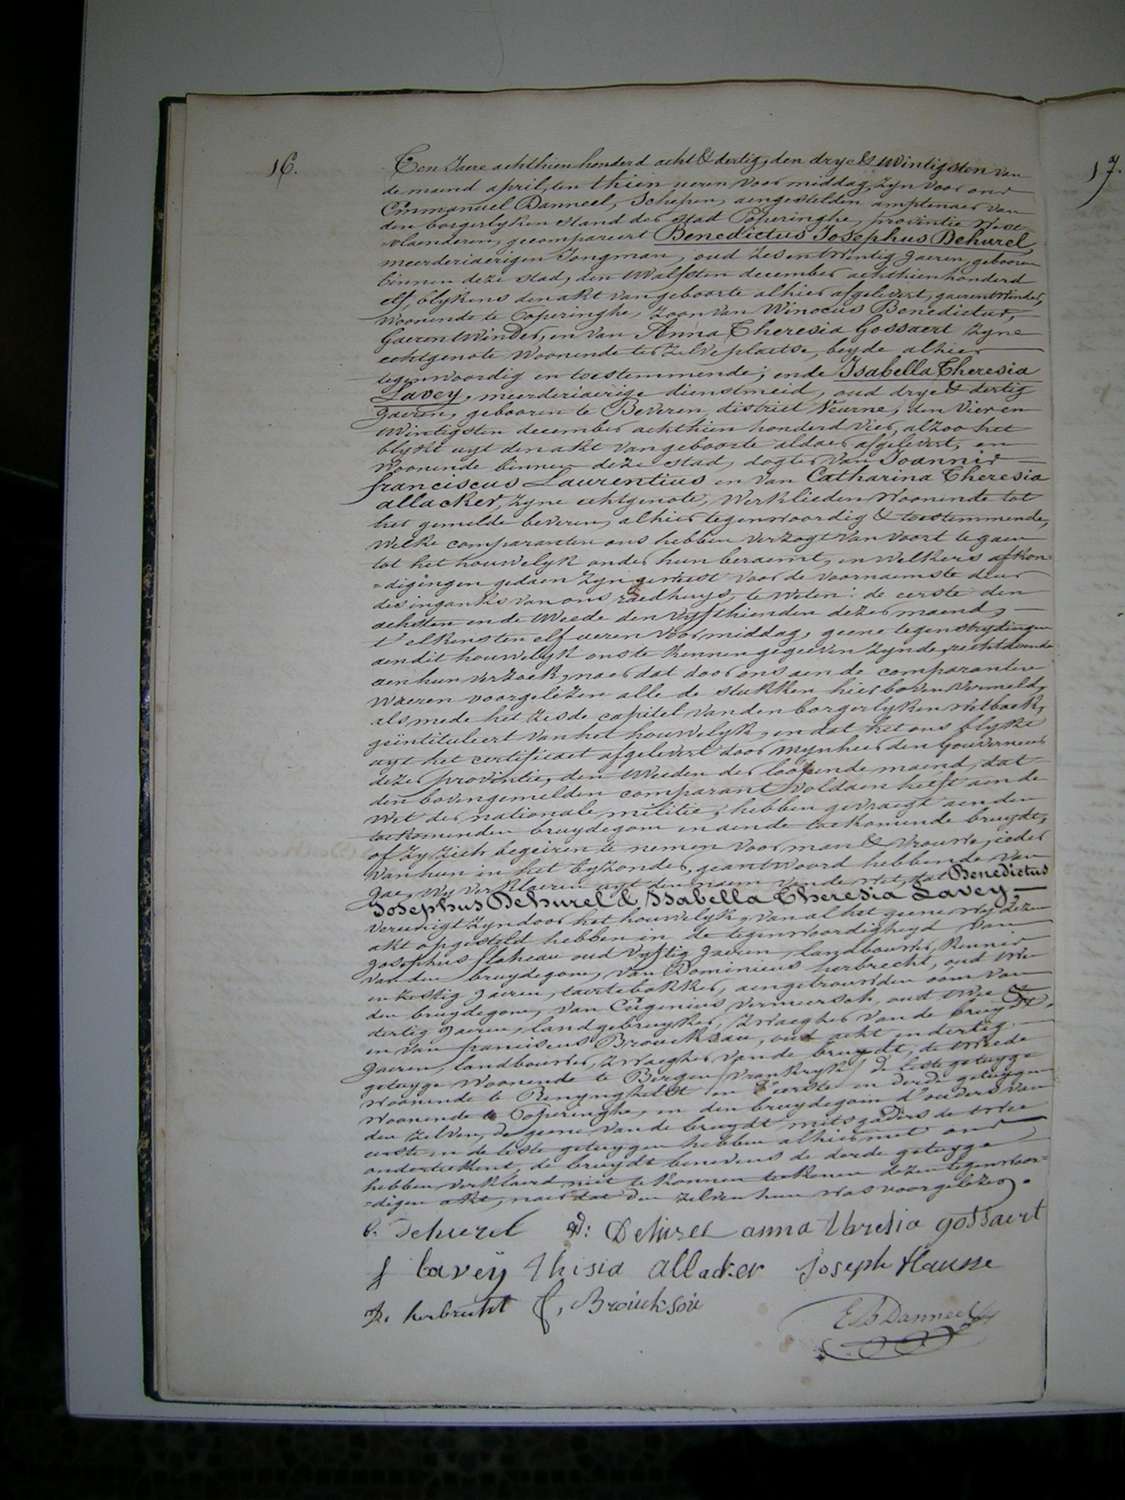 16.
Ten Jaere achthien honderd acht & dertig, den drye & twintigsten van
de maend april, ten thien ueren voor middag, zyn voor ons
Emmanuel Danneel, Schepen, aengestelden amptenaer van
den borgerlyken stand der stad Poperinghe, provintie West-
vlaenderen, gecompareert Benedictus Josephus Dehurel,
meerderjaerigen Jongman, oud zes en twintig Jaeren, gebooren
binnen deze stad, den twalfsten december achthien honderd
elf blykens den akt van geboorte alhier afgelevert, gaerentwinder,
woonende te Poperinghe, zoon van Winocus Benedictus,
Gaerentwinder, en van Anna Theresia Gossaert zyne
echtgenote woonende ter zelve plaetse, beyde alhier
tegenwoordig en toestemmende; ende Isabella Theresia
Lavey, meerderjaerige dienstmeid, oud drye & dertig
Jaeren, gebooren te Beveren, district Veurne, den vier en
twintigsten december achthien honderd vier, alzoo het
blykt uyt den akt van geboorte aldaer afgelevert, en
woonende binnen deze stad, dogter van Joannis
franciscus Laurentius en van Catharina Theresia
allacker, zyne echtgenote, werklieden woonende tot
het gemelde beveren, alhier tegenwoordig & toestemmende,
Welke comparanten ons hebben verzogt van voort te gaen
tot het houwelyk onder hun beraemt, en welkers afkon-
digingen gedaen zyn geweest voor de voornaemste deur
des ingankx van ons raedhuys, te weten: de eerste den
achsten en de tweede den vyfthienden dezer maend,
t'elkensten elf ueren voor middag, geene tegenstrydingen
aen dit houwelyk ons te kennen gegeeven zynde, rechtdoende
aen hun verzoek, naer dat door ons aen de comparanten
waeren voorgelezen alle de stukken hierboven vermeld,
als mede het zesde capitel van den borgerlyken wetboek,
geïntituleert van het houwelyk, en dat het ons blykt
uyt het certificaet afgelevert door mynheer den Gouverneur
dezer provintie, den tweeden der loopende maend, dat
den bovengemelden comparant voldaen heeft aen de
Wet der nationale militie; hebben gevraegt aen den
toekomenden bruydegom en aen de toekomende bruydt,
of zy zich begeiren te nemen voor man & vrouwe, ieder
van hun in het byzonder geantwoord hebbende van
Jae, wy verklaeren uyt den naem van de wet, dat Benedictus
Josephus Dehurel & Isabella Theresia Lavey,
vereenigt zyn door het houwelyk, van al het geene wy dezen
akt opgesteld hebben in de tegenwoordigheyd van
Josephus flahaus oud vyftig Jaeren, landbouwer, kennis
van den bruydegom, van Dominicus herbrecht, oud twee
en zestig Jaeren, taertebakker, aengetrouwden oom van
den bruydegom, van Eugenius Vermeersch, oud twee &
dertig Jaeren, landgebruyker, zwaeger van de bruydt,
en van franciscus Brouckson, oud acht en dertig
Jaeren, landbouwer, zwaeger van de bruydt, de tweede
getuyge woonende te Bergen /vrankryk/ de leste getuyge
woonende te Renynghelst en d'eerste en derde getuygen
woonende te Poperinghe, en den bruydegom d'ouders van
den zelven, de geene van de bruydt mitsgaders de twee
eerste en de leste getuygen hebben alhier met ons
onderteekent, de bruydt benevens de derde getuyge
hebben verklaerd niet te konnen teekenen dezen tegenwoor-
digen akt, naer dat den zelven hun was voorgelezen.
b. Dehurel Dehurel anna thresia gossaert
f lavey thisia allacker Joseph flausse
herbrecht f, Brouckson
E B Danneel
17.